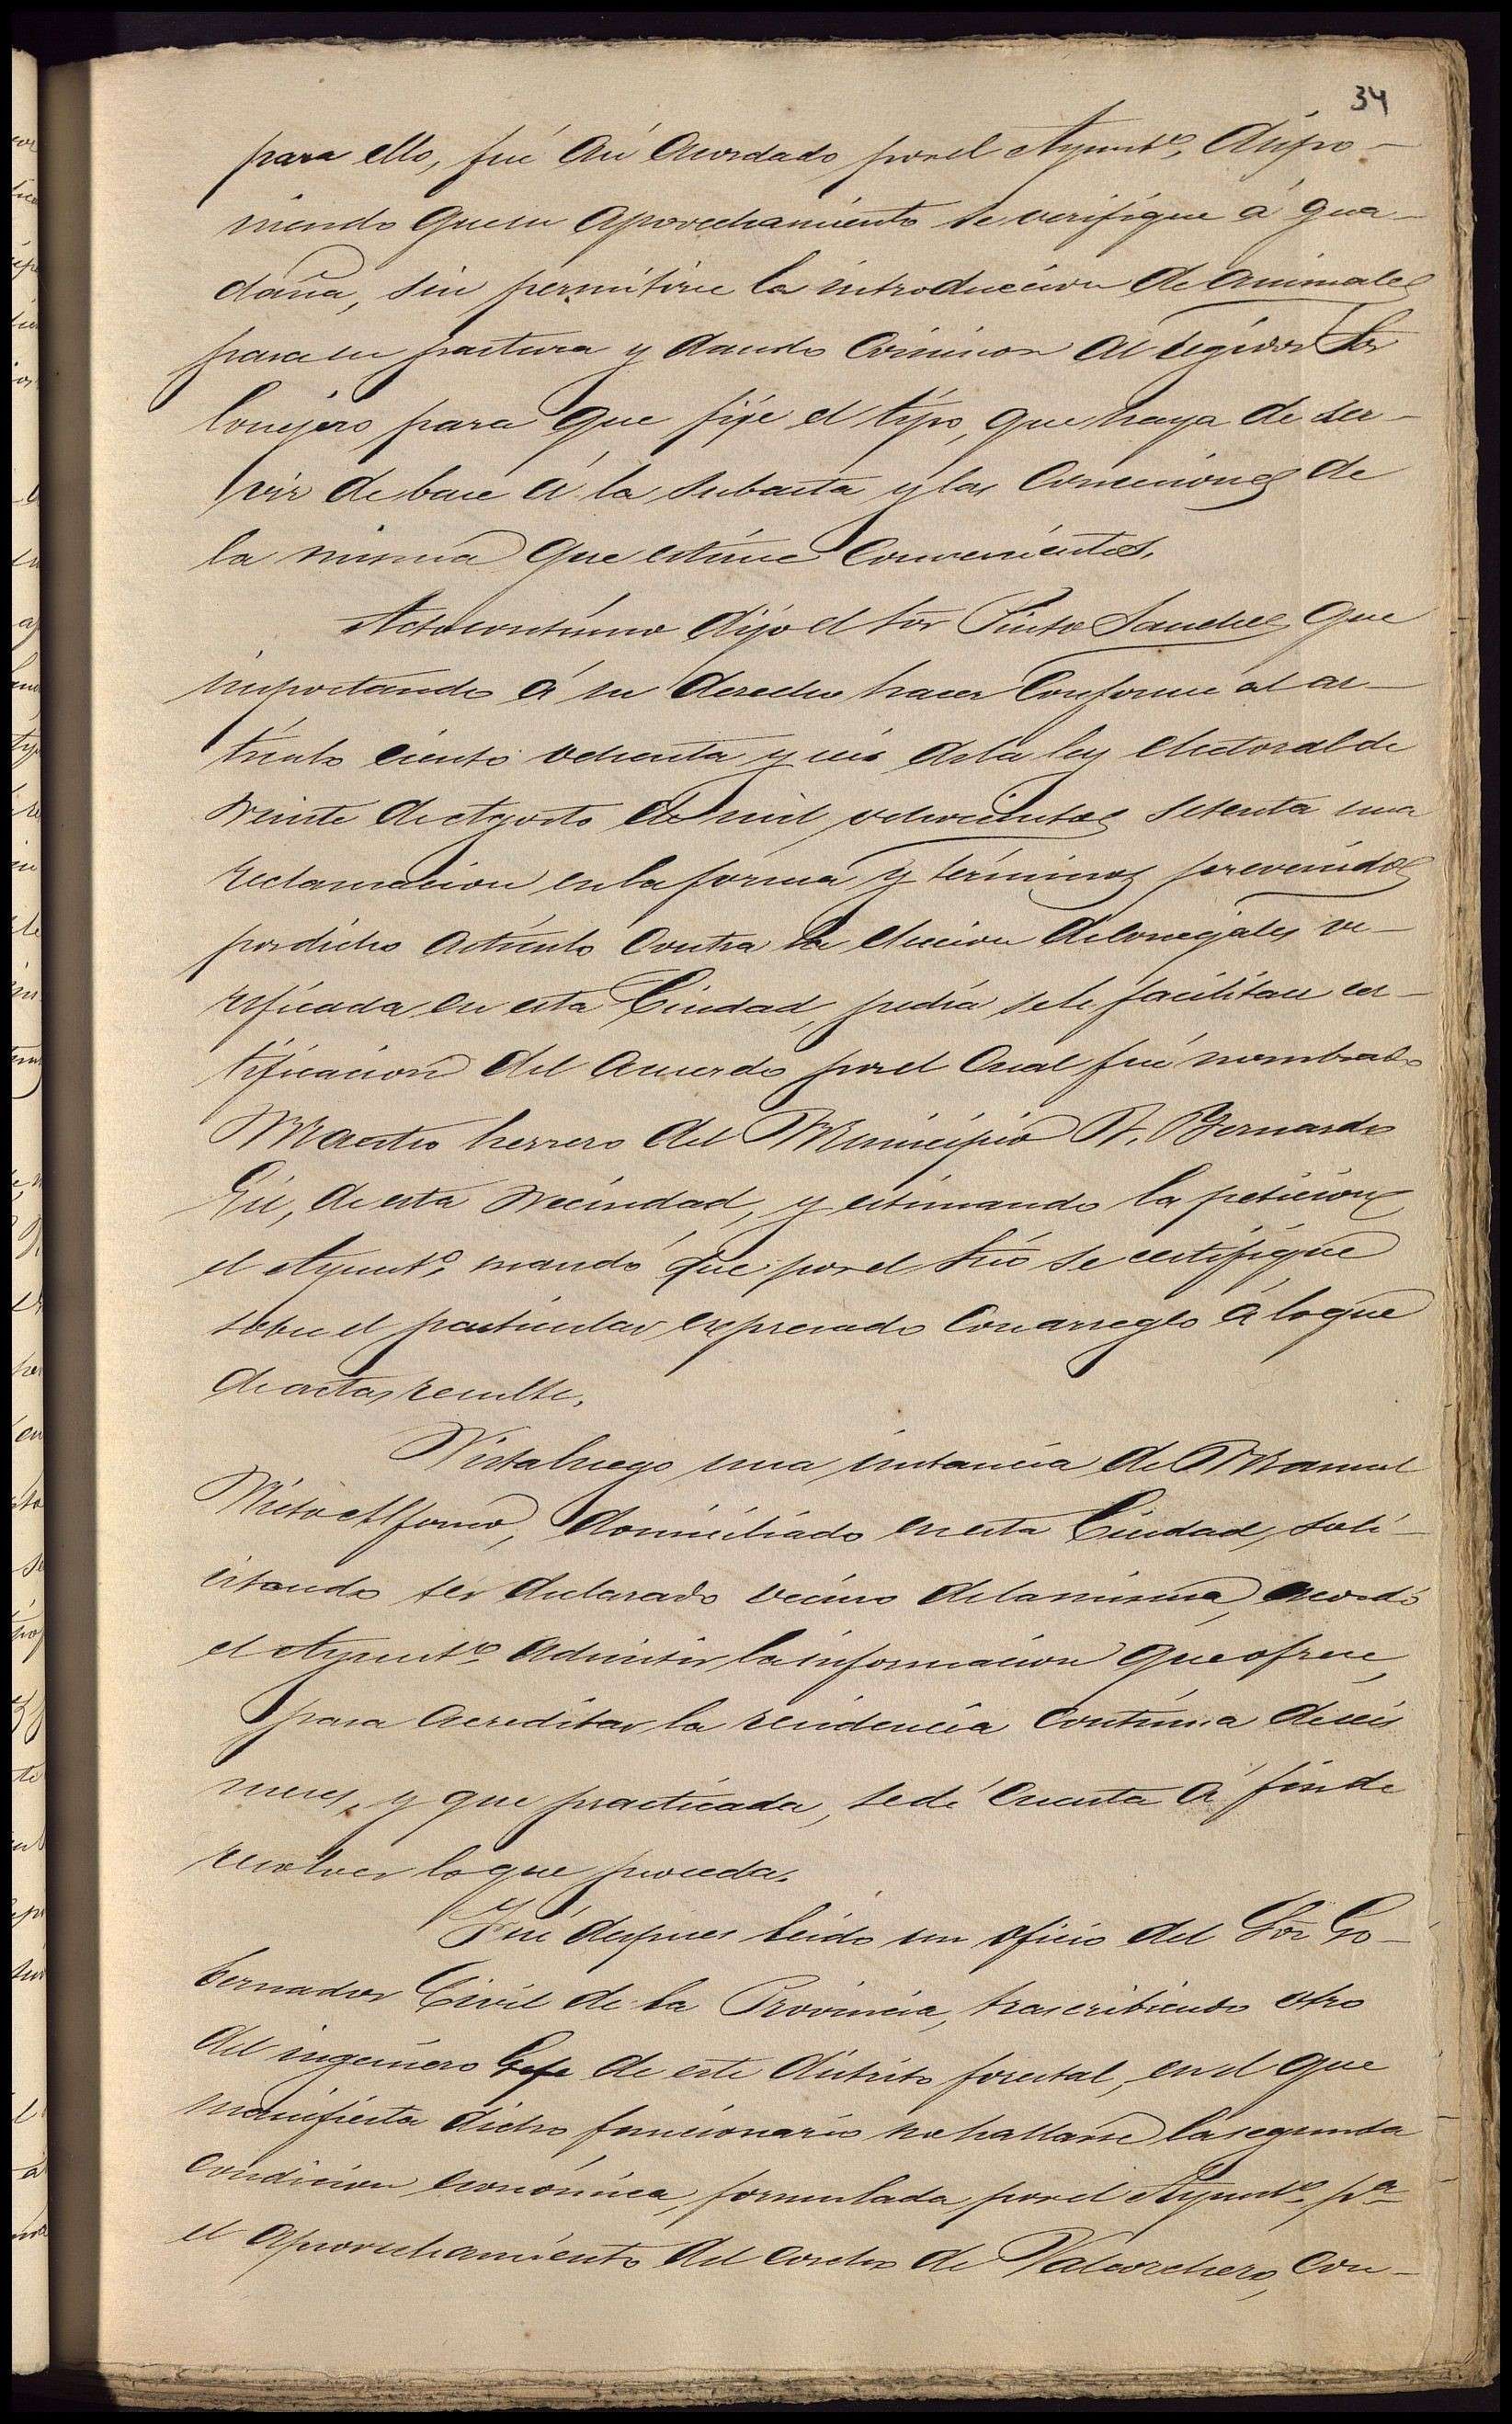 34
para ello, fué así acordado por el Ayunt.º, dispo-
niendo que su aprovechamiento se verifique á gua-
daña, sin permitirse la introduccion de animales
para su pastura y dando comision al regidor Sor
Conejero para que fije el tipo, que haya de ser-
vir de base á la subasta y las condiciones de
la misma que estime convenientes.
Acto contínuo dijo el Sor Pinto Sanchez que
importando á su derecho hacer conforme al ar-
tículo ciento ochenta y seis de la ley electoral de
veinte de Agosto de mil ochocientos setenta una
reclamacion en la forma y términos prevenidos
por dicho artículo contra la eleccion de concejales ve-
rificada en esta Ciudad, pedia se le facilitase cer-
tificacion del acuerdo por el cual fué nombrado
Maestro herrero del Municipio D. Bernardo
Gil, de esta vecindad, y estimando la peticion
el Ayunt.º mandó que por el Srio se certifique
sobre el particular expresado con arreglo á lo que
de actas resulte.
Vista luego una instancia de Manuel
Nieto Alfonso, domiciliado en esta Ciudad, soli-
citando ser declarado vecino de la misma, acordó
el Ayunt.º admitir la informacion que ofrece,
para acreditar la residencia contínua de seis
meses, y que practicada, se dé cuenta á fin de
resolver lo que proceda.
Fué despues leido un oficio del Sor Go-
bernador Civil de la Provincia, trascribiendo otro
del ingeniero Gefe de este distrito forestal, en el que
manifiesta dicho funcionario no hallarse la segunda
condicion económica, formulada por el Ayunt.º pª
el aprovechamiento del corcho de Valcorchero, con-